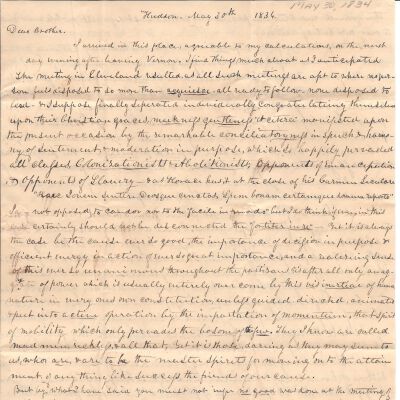 MAY 30, 1834
Hudson. May 30th 1834.
Dear Brother.
I arrived in this place, agreeable to my calculations, on the next
day evening after leaving Vernon. I find things much about as I anticipated
The meeting in Cleveland resulted, as all such meetings are apt to where no per-
son feels disposed to do more than acquiesce - all ready to follow none disposed to
lead - & I suppose finally separated individually congratulating themselves
upon their Christian graces, meekness gentleness &c &c &c manifested upon
the present occasion by the remarkable conciliatoryness in speech & harmo-
ny of sentiment, & moderation in purpose, which so happily pervaded
all classes Colonizationists & Abolitionists, Opponents of Emancipation
& Opponents of Slavery - & as Horace has it at the close of his Carmen Seculare
"Haec Jovem sentire Deosque cunctos, Spem bonam certamque domum reporto"
not opposed, to can dor nor to the "fucile in modo" but I do think
certainly should not be disconnected the "fortiter in re" - Yet it is always
the case be the cause ever so good, the importance of decision in purpose &
efficient energy in action of ever so great importance, and a wavering
of this ever so unanimous throughout the it is after all only
of power which is usually entirely overcome by this vis inertiae of human
nature in every ones own constitution, unless guided directed, animated
& put into active operation by the impartation of momentum, that spirit
of mobility, which only pervades the bosom of the few. They I know are called
mad men reckless & all that, Yet it is those, daring as they may seem to
us, who are, & are to be the master spirits for moving on to the attain-
ment, of any thing like success the friends of our cause.
But by what I have said you must not infer no good was done at the meeting